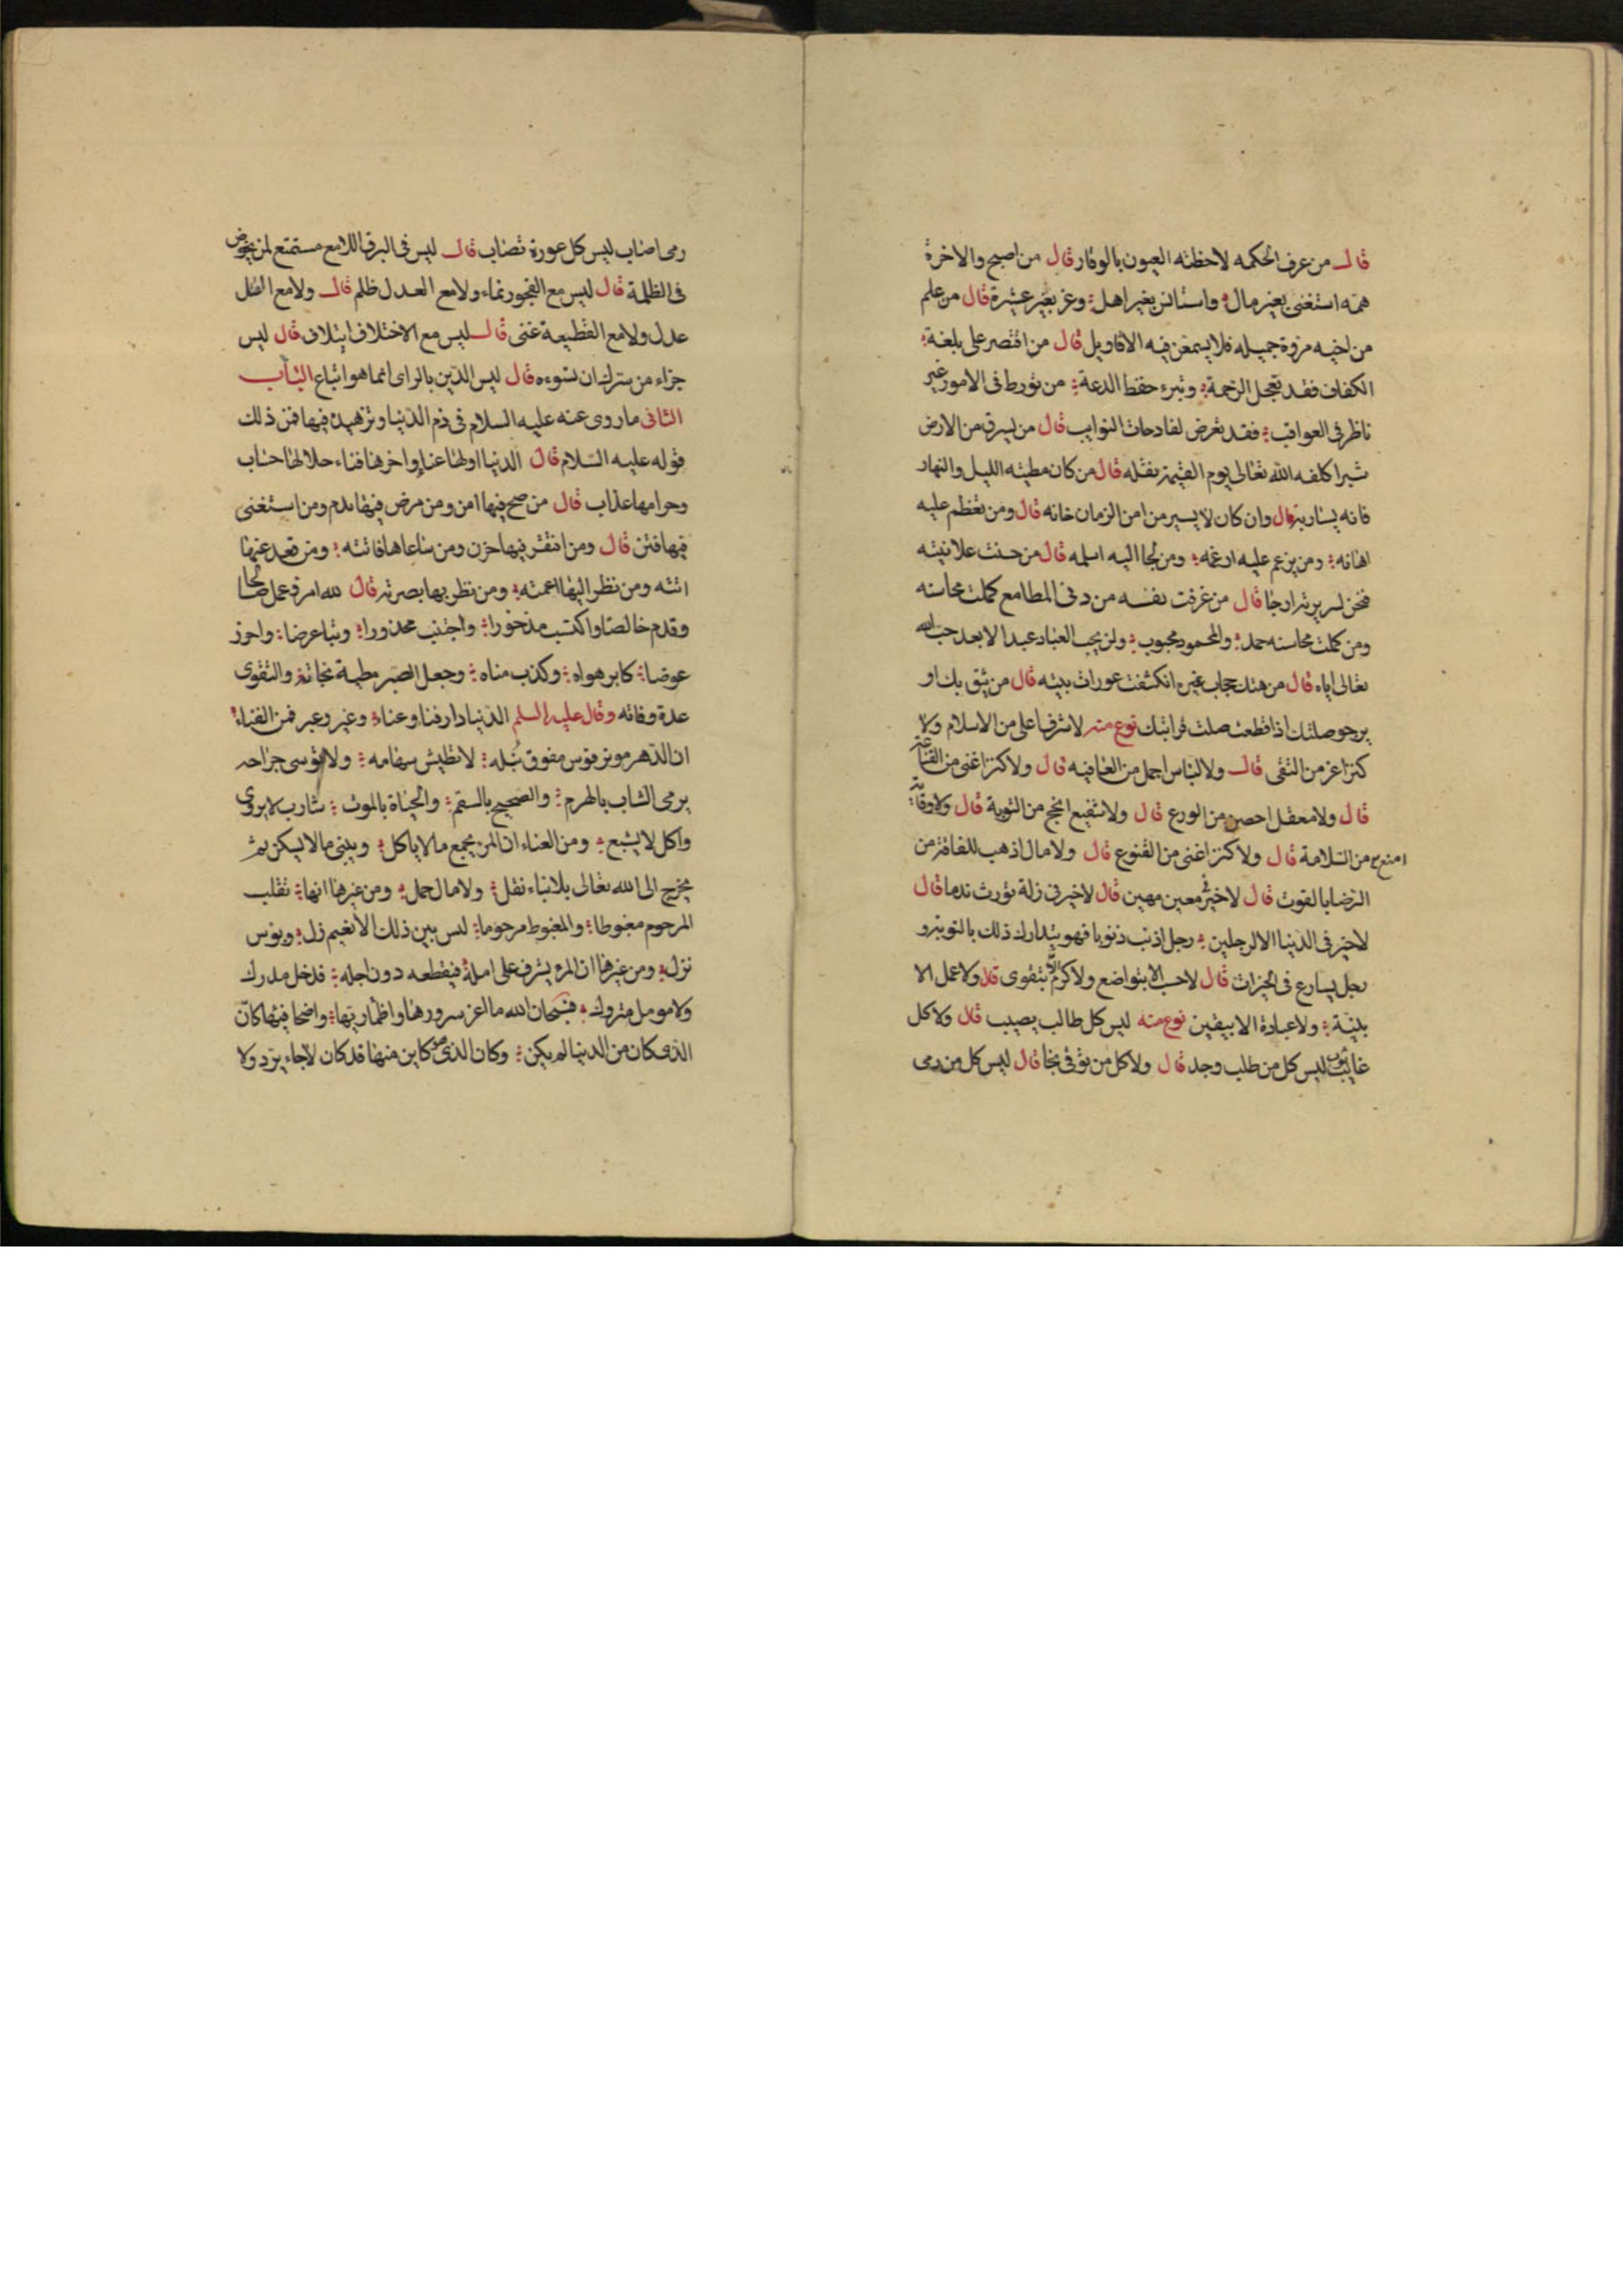 قال من عرف الحكمه لاحظته العيون بالوقار قال من اصبح والاخرة
همه استغنى بغير مال واستانس بغير اهل وعز بغير عشيرة قال من علم
من اخيه مروة جميله فلا يسمعن فيه الاقاويل قال من اقتصر على بلغة
الكفاف فقد تعجل الرحمة وتبوء حفظ الدعة من تورط فى الامور غير
ناظر فى العواقب فقد تعرض لفادحات النوايب قال من يسرق من الارض
شبرا كلفه الله تعالى يوم القيمة بقتله قال من كان مطيته الليل والنهار
فانه يسار به قال وان كان لا يسير من امن الزمان خانه قال ومن تعظم عليه
اهانه ومن يزعم عليه ارغمه ومن لجا اليه اسلمه قال من حسنت علانيته
فنحن لسريرته ارجا قال من عرفت نفسه من دنى المطامع كملت محاسنه
ومن كملت محاسنه حمد والمحمود محبوب ولن يحب العباد عبدا الا بعد حب الله
تعالى اياه قال من هتك حجاب غيره انكشفت عورات بيته قال من يثق بك او
يرجو صلتك اذا قطعت صلت قرابتك نوع منه لا شرف اعلى من الاسلام ولا
كنزا عز من التقى قال ولا لباس اجمل من العافيه قال ولا كنزا غنى من القناعة
قال ولا معقل احصن من الورع قال ولا شفيع انجح من التوبة قال ولا وقاية
امنع من السلامة قال ولا كنزا غنى من القنوع قال ولا مال اذهب للفاقة من
الرضا بالقوت قال لا خير فى معين مهين قال لا خير فى زلة تورث ندما قال
لا خير فى الدنيا الا لرجلين رجل اذنب ذنوبا فهو يتدارك ذلك بالتوبة و
رجل يسارع فى الخيرات قال لا حسب الا بتواضع ولا كرم الا بتقوى قال ولا عمل الا
بنية ولا عبادة الا بيقين نوع منه ليس كل طالب يصيب قال ولا كل
غايب يؤب ليس كل من طلب وجد قال ولا كل من توقى نجا قال ليس كل من رمى
رمى اصاب ليس كل عورة تصاب قال ليس فى البرق اللامع مستمتع لمن يخوض
فى الظلمة قال ليس مع الفجور نماء ولا مع العدل ظلم قال ولا مع القتل
عدل ولا مع القطيعة غنى قال ليس مع الاختلاف ايتلاف قال ليس
جزاء من سرك ان تسوءه قال ليس الدين بالراى انما هو اتباع الباب
الثانى ما روى عنه عليه السلام فى ذم الدنيا وتزهيده فيها فمن ذلك
قوله عليه السلام قال الدنيا اولها عناء واخرها فناء حلالها حساب
وحرامها عذاب قال من صح فيها امن ومن مرض فيها ندم ومن استغنى
فيها فتن قال ومن افتقر فيها حزن ومن ساعاها فاتته ومن قعد عنها
اتته ومن نظر اليها اعمته ومن نظر بها بصرته قال لله امرؤ عمل صالحا
وقدم خالصا واكتسب مذخورا واجتنب محذورا ورمى عرضا واحرز
عوضا كابر هواه وكذب مناه وجعل الصبر مطية نجاته والتقوى
عدة وفاته وقال عليه السلم الدنيا دار فنا وعناء وغير وعبر فمن الفناء
ان الدهر موتر قوس مفوق نبله لا تطيش سهامه ولا توسى جراحه
يرمى الشاب بالهرم والصحيح بالسقم والحياة بالموت شارب لا يروى
واكل لا يشبع ومن العناء ان المرء يجمع ما لا ياكل ويبنى ما لا يسكن ثم
يخرج الى الله تعالى بلا بناء نقل ولا مال حمل ومن غيرها انها تقلب
المرحوم مغبوطا والمغبوط مرحوما ليس بين ذلك الا نعيم زل وبوس
نزل ومن غيرها ان المرء يشرف على امله فيقطعه دون اجله فلا خل مدرك
ولا مومل متروك فسبحان الله ما اعز سرورها واظما ريها واضحا فيئها كان
الذى كان من الدنيا لم يكن وكان الذى هو كاين منها قد كان لا جاء يرد ولا